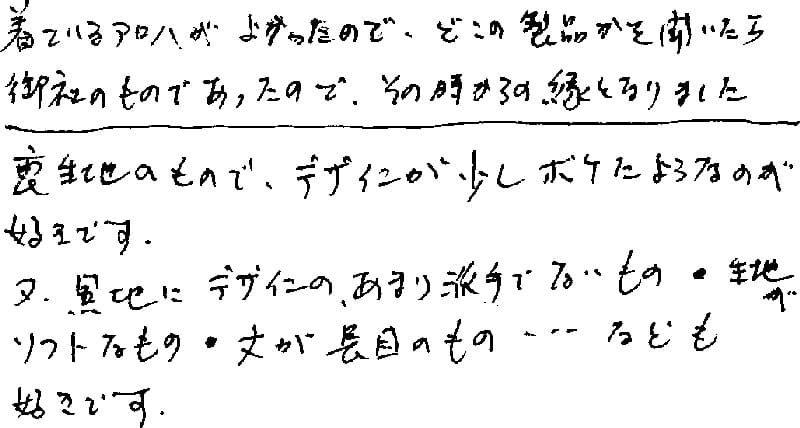 着ているアロハがよかったので、どこの製品かを聞いたら
御社のものであったので、その時からの縁となりました
裏生地のもので、デザインが少しボケたようなのが
好きです。
又、黒地にデザインの、あまり派手でないもの・生地が
ソフトなもの・丈が長目のもの…なども
好きです。